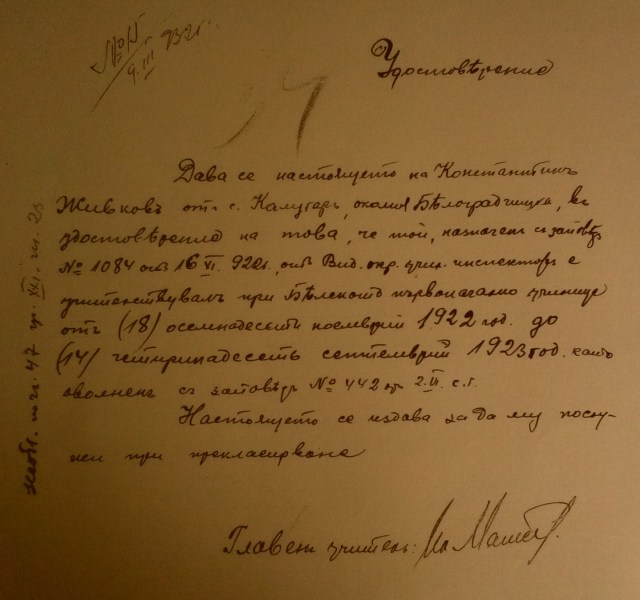 № 15
9.III 932 г.
Удостовѣрение
Дава се настоящето на Константинъ
Живковъ отъ с. Калугеръ, околия Бѣлоградчишка, въ
удостовѣрение на това, че той, назначен съ заповѣдь
№ 1084 отъ 16 VI. 922 г., отъ Вид. окр. учил. инспекторъ е
учителствувалъ при първоначално училище
отъ (18) осемнадесети ноемврий 1922 год. до
(14) четиринадесетъ септемврий 1923 год. като
уволненъ съ заповѣдь № 442 отъ с. г.
Настоящето се издава за да му послу-
жи при прекласиране
Главенъ учитель: